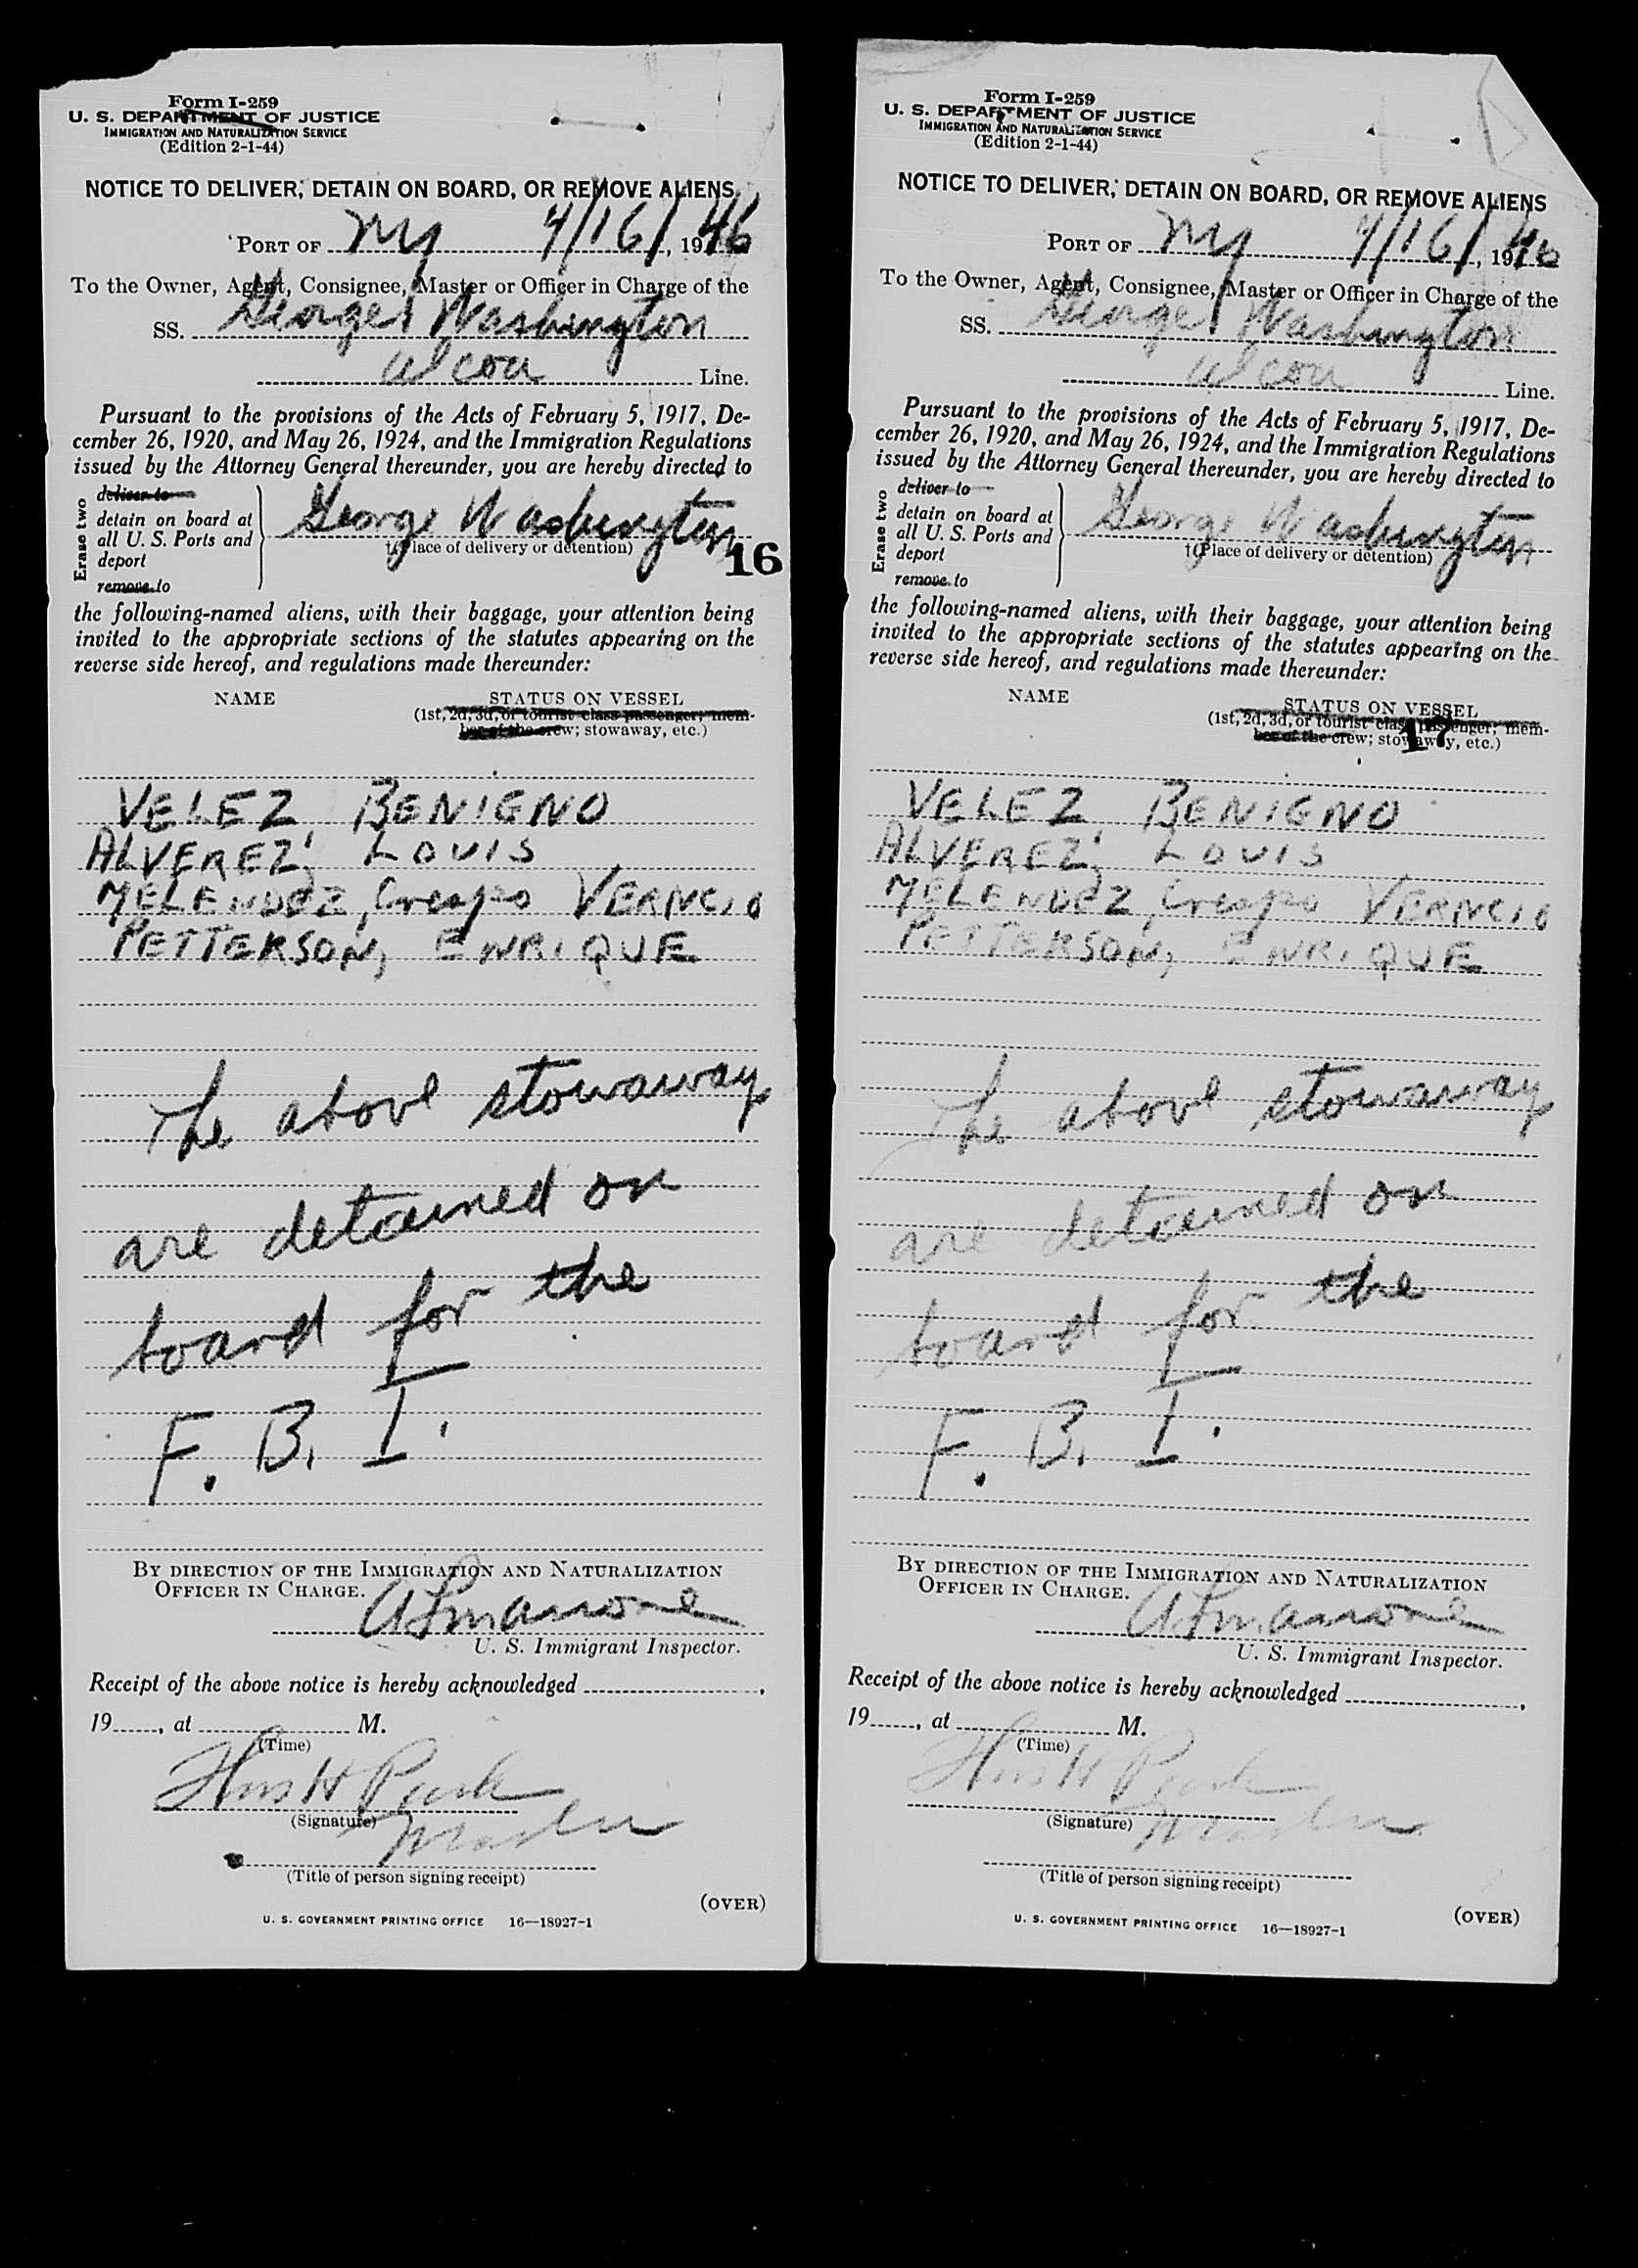 Form I-259
U. S. DEPARTMENT OF JUSTICE
IMMIGRATION AND NATURALIZATION SERVICE
(Edition 2-1-44)
NOTICE TO DELIVER, DETAIN ON BOARD, OR REMOVE ALIENS
PORT OF NY 4/16/, 1946
To the Owner, Agent, Consignee, Master or Officer in Charge of the
SS. George Washington
Alcoa Line.
Pursuant to the provisions of the Acts of February 5, 1917, De-
cember 26, 1920, and May 26, 1924, and the Immigration Regulations
issued by the Attorney General thereunder, you are hereby directed to
Erase two
deliver to
detain on board at
all U. S. Ports and
deport
remove to
George Washington
†(Place of delivery or detention)
16
the following-named aliens, with their baggage, your attention being
invited to the appropriate sections of the statutes appearing on the
reverse side hereof, and regulations made thereunder:
NAME STATUS ON VESSEL
(1st, 2d, 3d, or tourist class passenger; mem-
ber of the crew; stowaway, etc.)
VELEZ BENIGNO
ALVEREZ, LOUIS
MELENDEZ, Crespo VERNCIO
PETTERSON, ENRIQUE
The above stowaway
are detained on
board for the
F. B. I.
BY DIRECTION OF THE IMMIGRATION AND NATURALIZATION
OFFICER IN CHARGE.
U. S. Immigrant Inspector.
Receipt of the above notice is hereby acknowledged
19, at M.
(Time)
(Signature)
Master
(Title of person signing receipt)
(OVER)
U. S. GOVERNMENT PRINTING OFFICE 16—18927-1
Form I-259
U. S. DEPARTMENT OF JUSTICE
IMMIGRATION AND NATURALIZATION SERVICE
(Edition 2-1-44)
NOTICE TO DELIVER, DETAIN ON BOARD, OR REMOVE ALIENS
PORT OF NY 4/16/, 1946
To the Owner, Agent, Consignee, Master or Officer in Charge of the
SS. George Washington
Alcoa Line.
Pursuant to the provisions of the Acts of February 5, 1917, De-
cember 26, 1920, and May 26, 1924, and the Immigration Regulations
issued by the Attorney General thereunder, you are hereby directed to
Erase two
deliver to
detain on board at
all U. S. Ports and
deport
remove to
George Washington
†(Place of delivery or detention)
the following-named aliens, with their baggage, your attention being
invited to the appropriate sections of the statutes appearing on the
reverse side hereof, and regulations made thereunder:
NAME STATUS ON VESSEL
(1st, 2d, 3d, or tourist class passenger; mem-
ber of the crew; stowaway, etc.)
17
VELEZ BENIGNO
ALVEREZ, LOUIS
MELENDEZ, Crespo VERNCIO
PETTERSON, ENRIQUE
The above stowaway
are detained on
board for the
F. B. I.
BY DIRECTION OF THE IMMIGRATION AND NATURALIZATION
OFFICER IN CHARGE.
U. S. Immigrant Inspector.
Receipt of the above notice is hereby acknowledged
19, at M.
(Time)
(Signature)
Master
(Title of person signing receipt)
(OVER)
U. S. GOVERNMENT PRINTING OFFICE 16—18927-1